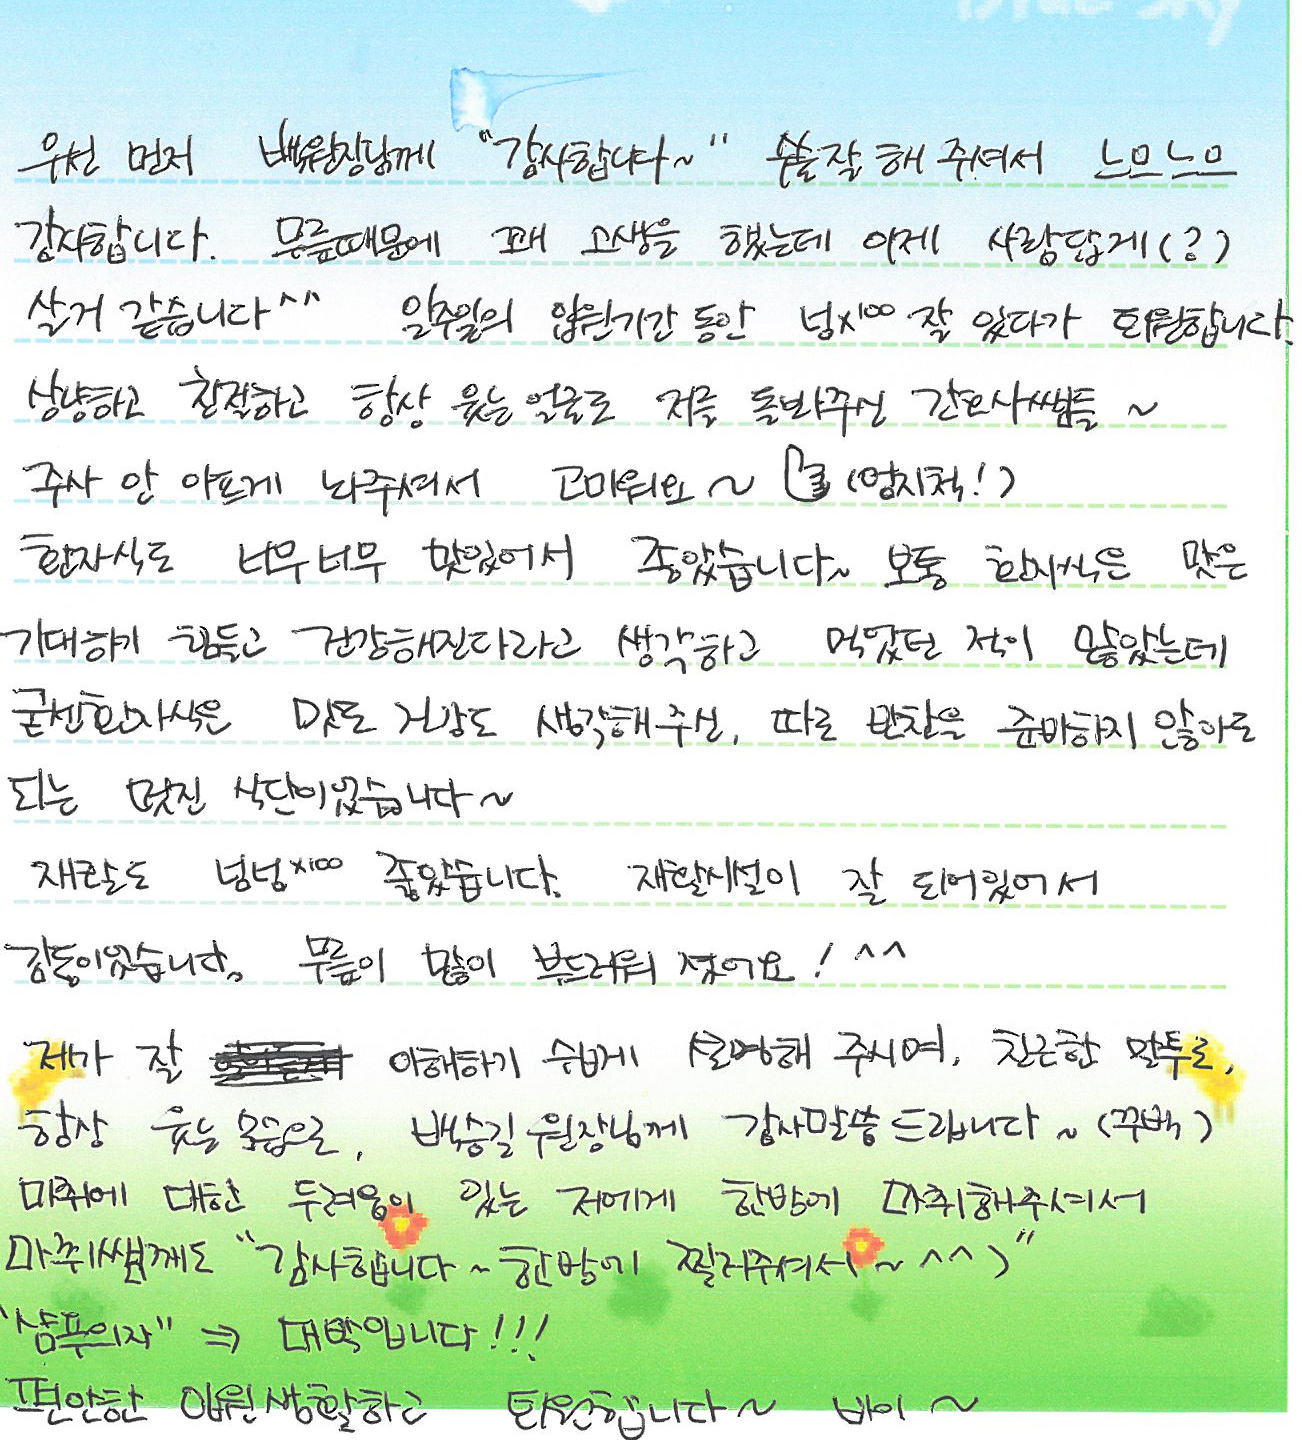 Blue Sky
우선 먼저 백원장님께 "감사합니다~" 수술 잘 해 주셔서 느므느므
감사합니다. 무릎때문에 꽤 고생을 했는데 이제 사람답게(?)
살거 같습니다^^ 일주일의 입원기간 동안 넘x100 잘 있다가 퇴원합니다.
상냥하고 친절하고 항상 웃는 얼굴로 저를 돌봐주신 간호사쌤들 ~
주사 안 아프게 놔주셔서 고마워요 ~ (엄지척!)
환자식도 너무너무 맛있어서 좋았습니다~ 보통 환자식은 맛은
기대하기 힘들고 건강해진다라고 생각하고 먹었던 적이 많았는데
굳센환자식은 맛도 건강도 생각해주신, 따로 반찬을 준비하지 않아도
되는 멋진 식단이었습니다~
재활도 넘넘x100 좋았습니다. 재활시설이 잘 되어있어서
감동이었습니다. 무릎이 많이 부드러워 졌어요! ^^
제가 잘 이해하기 쉽게 설명해 주시며, 친근한 말투로,
항상 웃는 모습으로, 백승길 원장님께 감사말씀 드립니다~ (꾸벅)
마취에 대한 두려움이 있는 저에게 한방에 마취해주셔서
마취쌤께도 "감사합니다~ 한방에 찔러주셔서(~^^)"
"샴푸의자" ⇒ 대박입니다!!!
편안한 입원생활하고 퇴원합니다~ 바이~